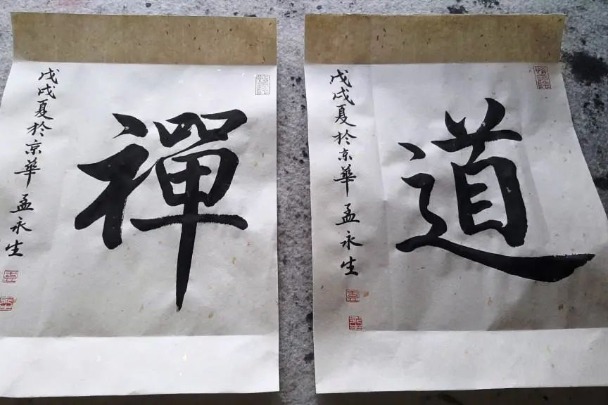 禪
戊戌夏於京華孟永生
道
戊戌夏於京華孟永生